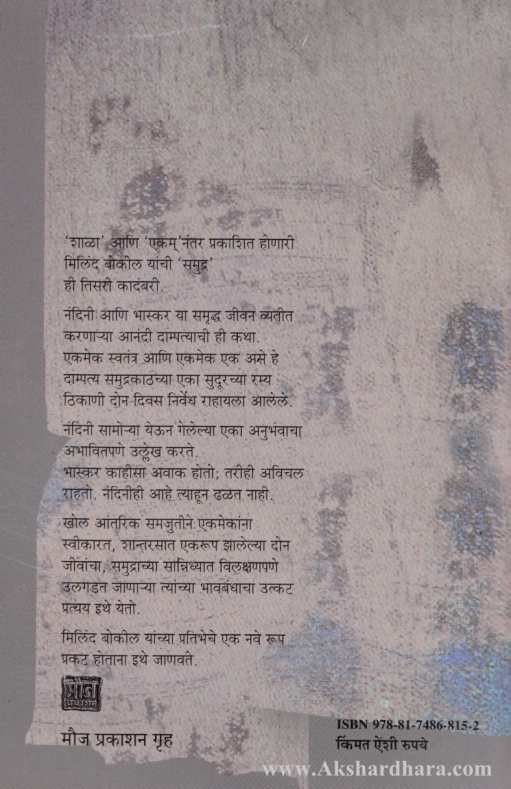 'शाळा' आणि 'एकम्'नंतर प्रकाशित होणारी
मिलिंद बोकील यांची 'समुद्र'
ही तिसरी कादंबरी.
नंदिनी आणि भास्कर या समृद्ध जीवन व्यतीत
करणाऱ्या आनंदी दाम्पत्याची ही कथा.
एकमेक स्वतंत्र आणि एकमेक एक असे हे
दाम्पत्य समुद्रकाठच्या एका सुदूरच्या रम्य
ठिकाणी दोन दिवस निर्वेध राहायला आलेले.
नंदिनी सामोऱ्या येऊन गेलेल्या एका अनुभवाचा
अभावितपणे उल्लेख करते.
भास्कर काहीसा अवाक होतो; तरीही अविचल
राहतो. नंदिनीही आहे त्याहून ढळत नाही.
खोल आंतरिक समजुतीने एकमेकांना
स्वीकारत, शान्तरसात एकरूप झालेल्या दोन
जीवांचा, समुद्राच्या सान्निध्यात विलक्षणपणे
उलगडत जाणाऱ्या त्यांच्या भावबंधाचा उत्कट
प्रत्यय इथे येतो.
मिलिंद बोकील यांच्या प्रतिभेचे एक नवे रूप
प्रकट होताना इथे जाणवते.
मौज
प्रकाशन
मौज प्रकाशन गृह
ISBN 978-81-7486-815-2
किंमत ऐंशी रुपये
www.Akshardhara.com